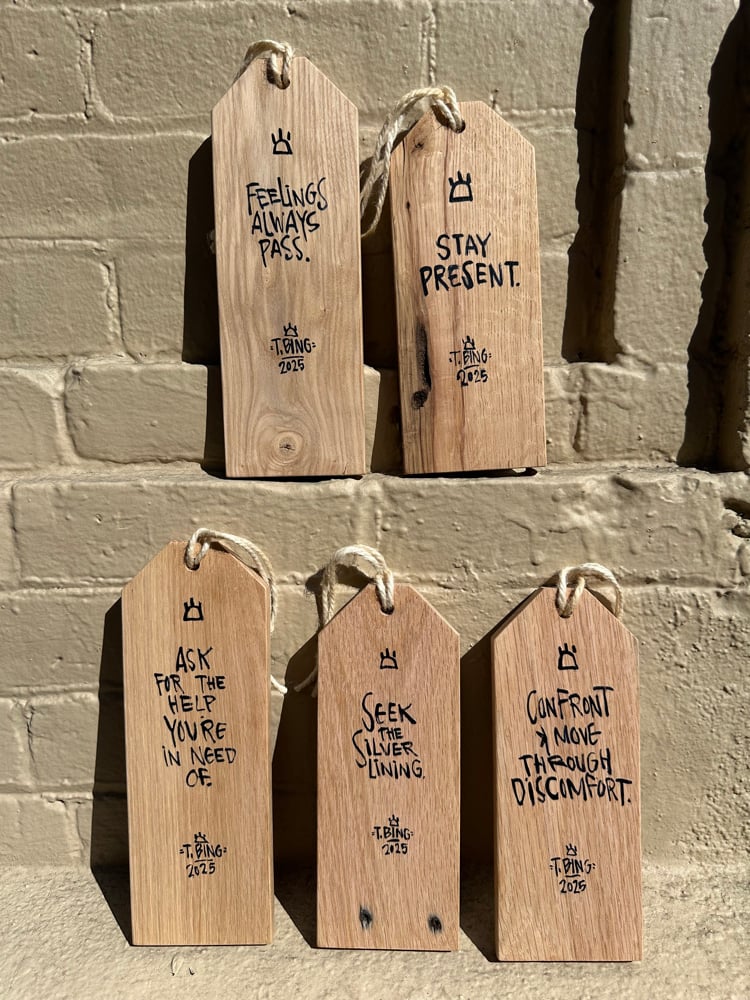 FEELINGS
ALWAYS
PASS.
T. BING
2025
STAY
PRESENT.
T. BING
2025
ASK
FOR THE
HELP
YOU'RE
IN NEED
OF.
T. BING
2025
SEEK
THE
SILVER
LINING.
T. BING
2025
CONFRONT
& MOVE
THROUGH
DISCOMFORT.
T. BING
2025